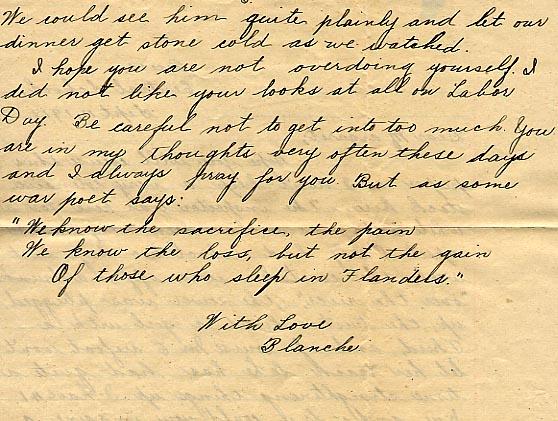 We could see him quite plainly and let our
dinner get stone cold as we watched.
I hope you are not overdoing yourself. I
did not like your looks at all on Labor
Day. Be careful not to get into too much. You
are in my thoughts very often these days
and I always pray for you. But as some
war poet says:
"We know the sacrifice, the pain
We know the loss, but not the gain
Of those who sleep in Flanders."
With Love
Blanche